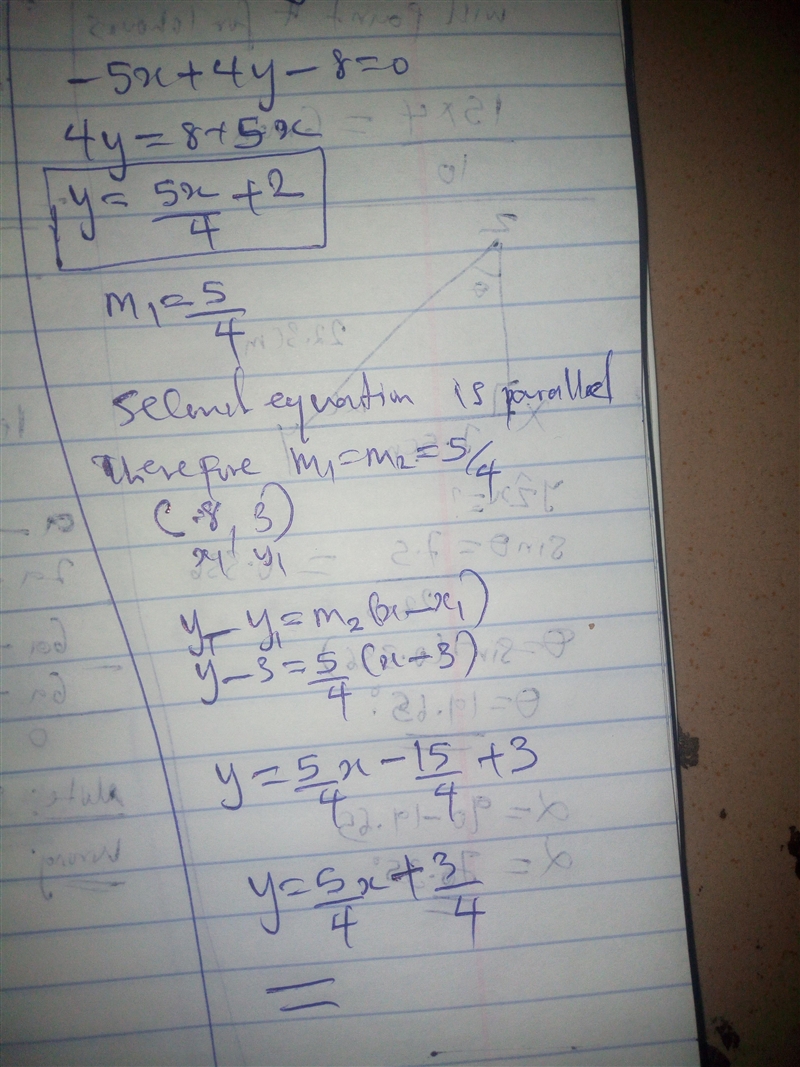 -5x+4y-8=0
4y=8+5x
y=5x/4+2
m₁=5/4
Second equation is parallel
therefore m₁=m₂=5/4
(-8, 3)
x₁ y₁
y-y₁=m₂(x-x₁)
y-3=5/4(x-3)
y=5/4x-15/4+3
y=5/4x+3/4